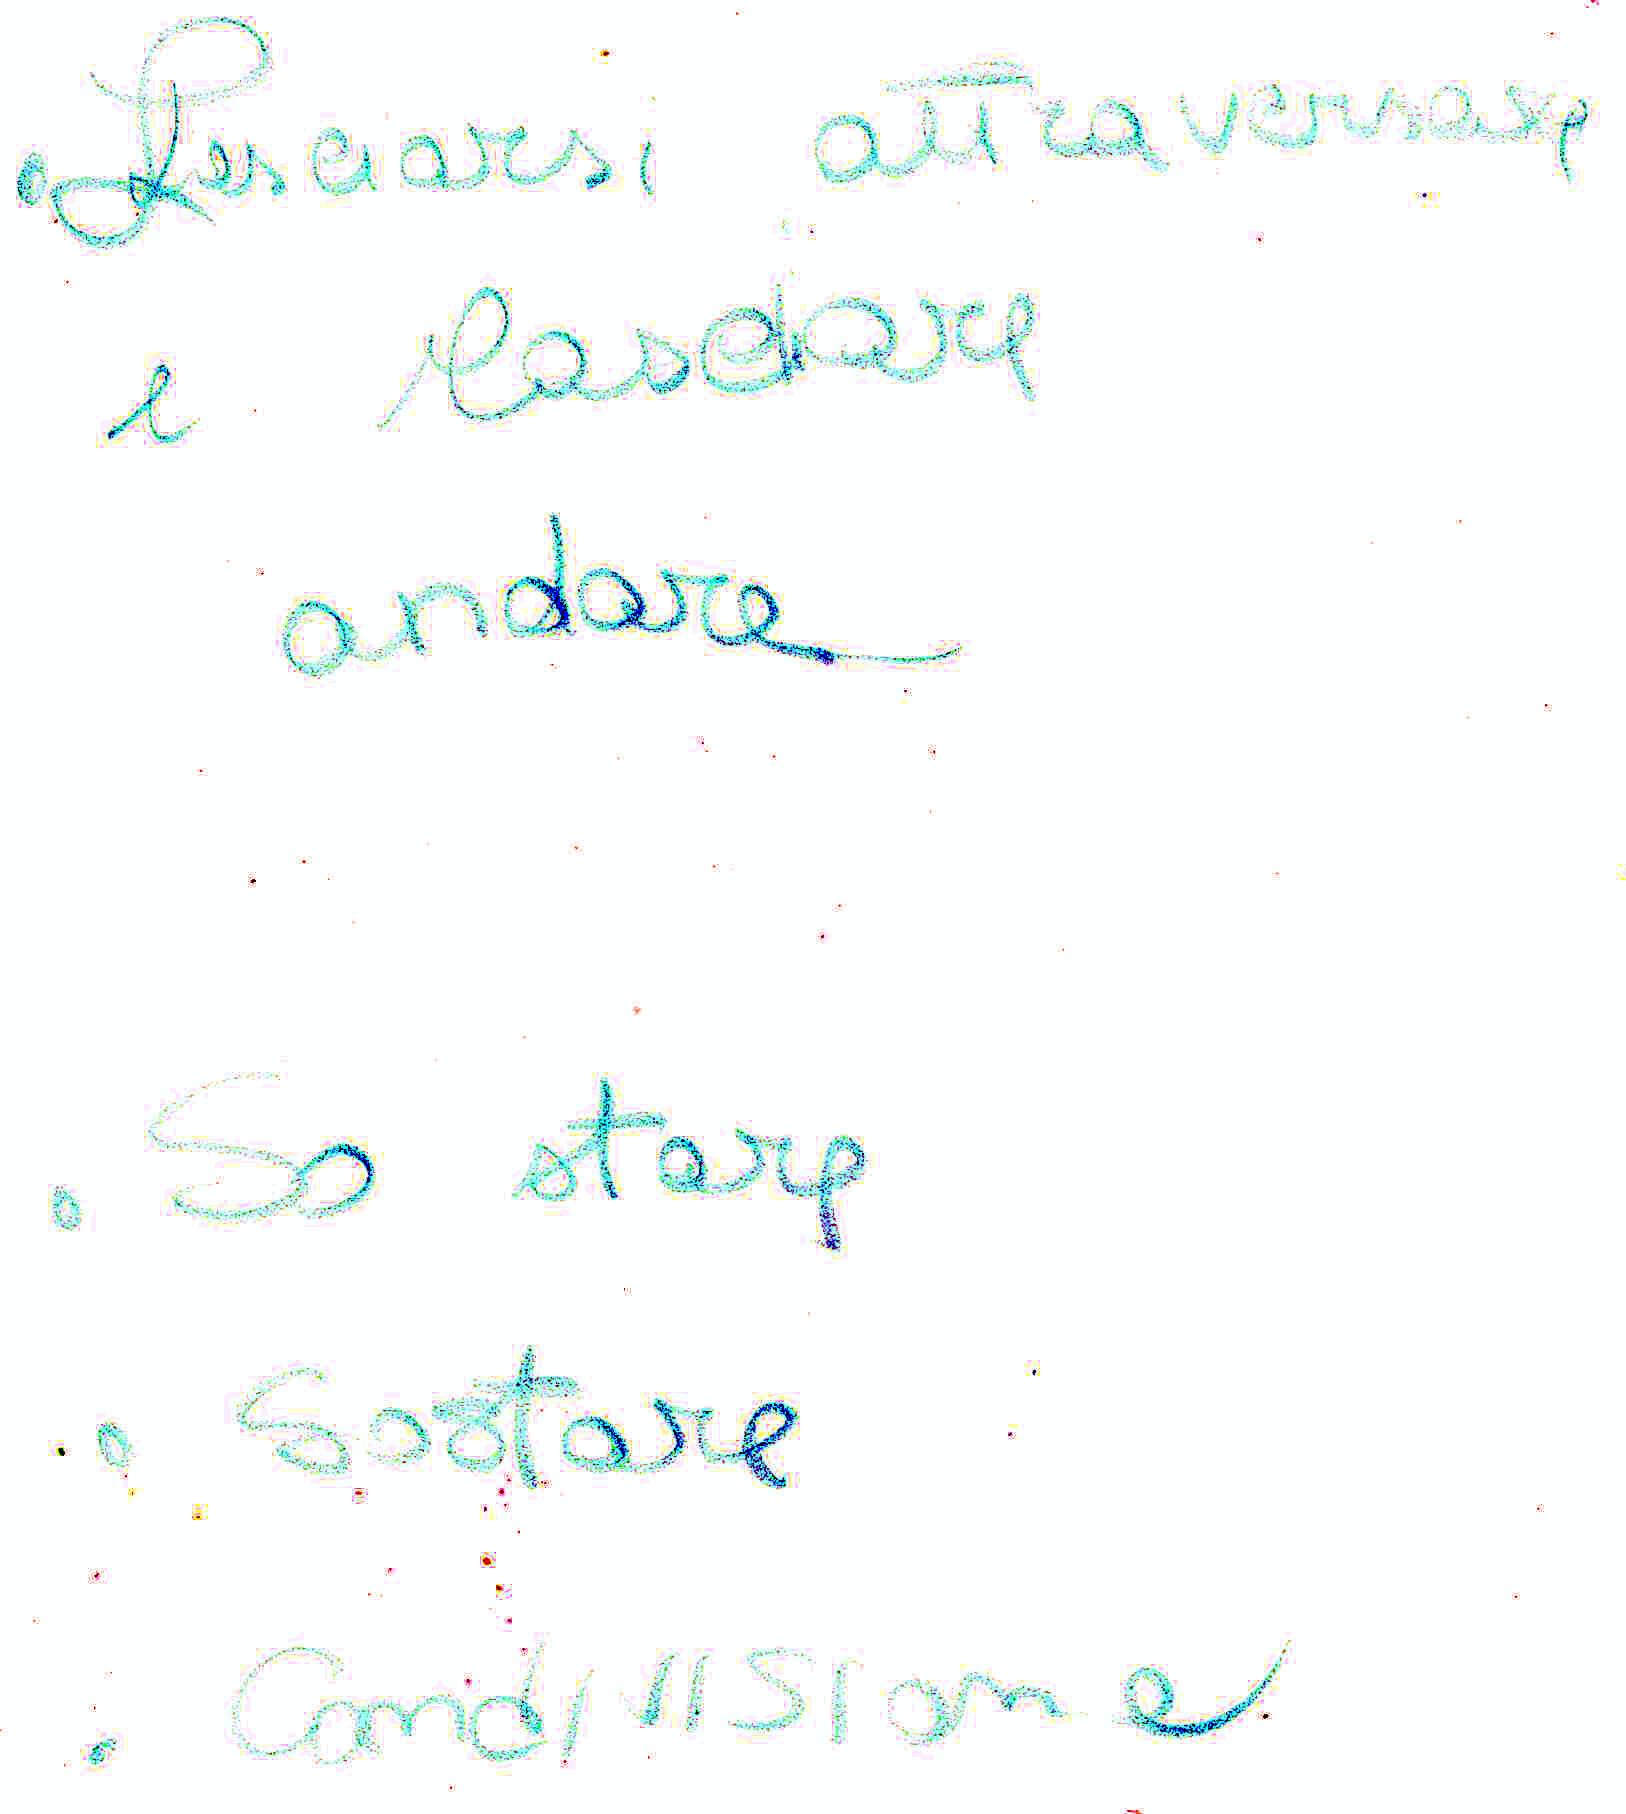 • Lasciarsi attraversare
e lasciare
andare
• So stare
• Sostare
• Condivisione